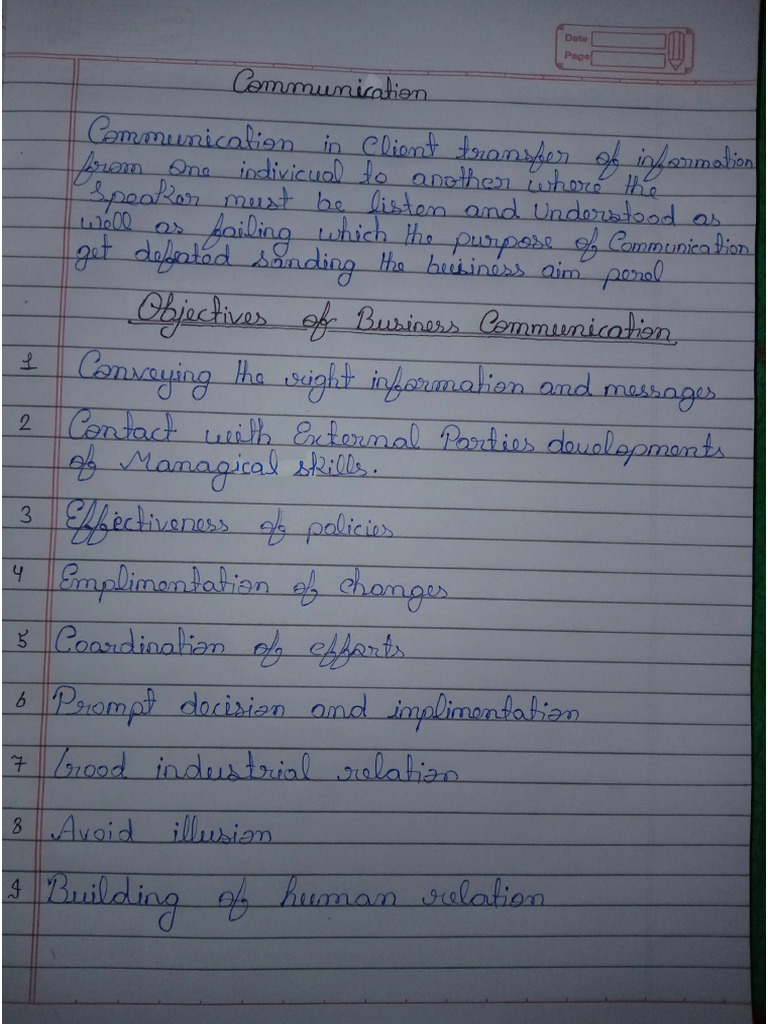 Date
Page
Communication
Communication in Client transfer of information
from one indivicual to another where the
speaker must be listen and Understood as
well as failing which the purpose of Communication
get defeated sanding the business aim perel
Objectives of Business Communication
1 Conveying the right information and messages
2 Contact with External Parties developments
of Managical skills.
3 Effectiveness of policies
4 Emplimentation of changes
5 Coardination of efforts
6 Prompt decision and implimentation
7 Good industrial relation
8 Avoid illusion
9 Building of human relation